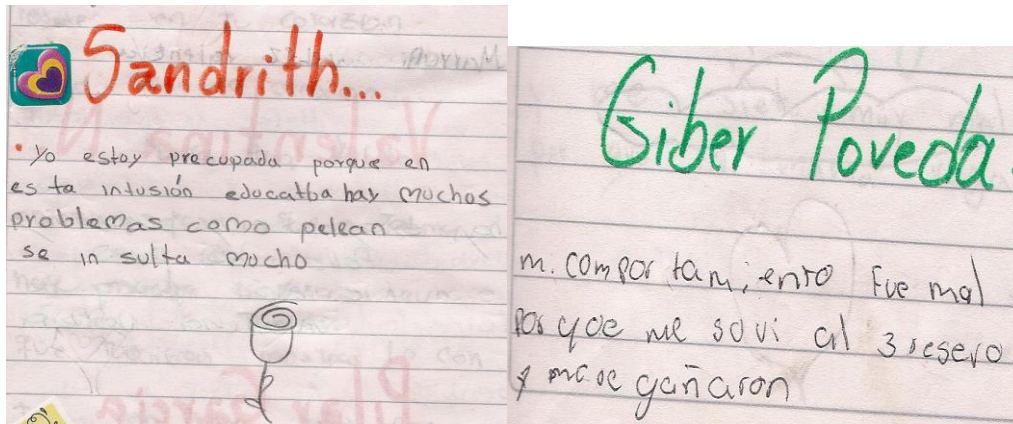 Sandrith...
• Yo estoy precupada porque en
es ta intusión educatba hay muchos
problemas como pelean
se in sulta mucho
Giber Poveda.
m. compor tam,ento Fue mal
Por que me sovi al 3 resero
y
gañaron